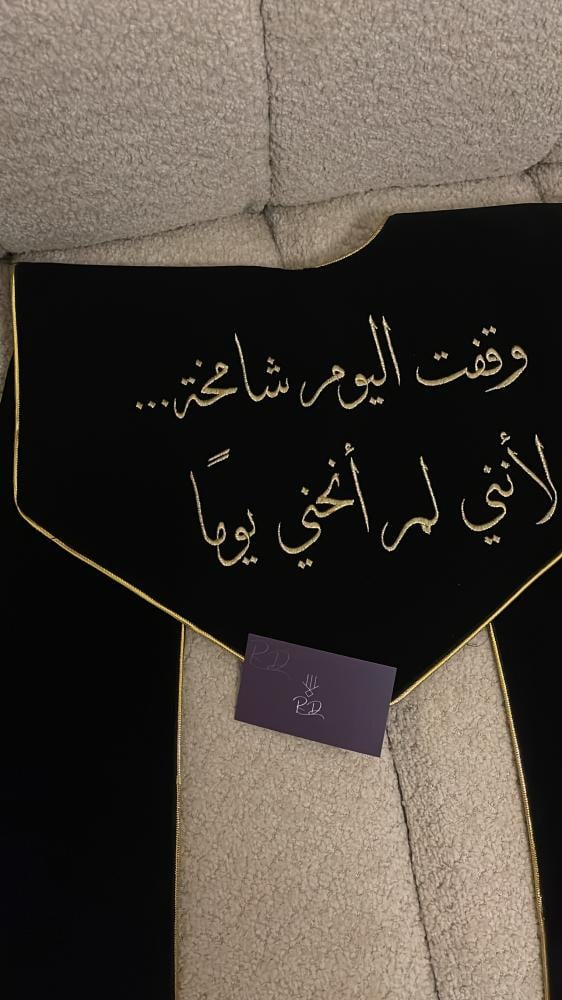 وقفت اليوم شامخة...
لأنني لم أنحني يوماً
RD
RD